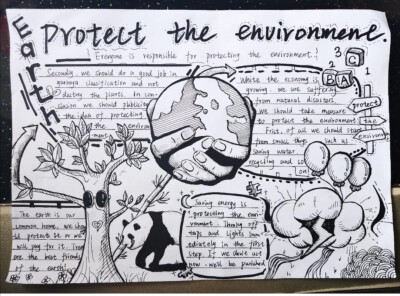 Earth
Protect the environment.
Everyone is responsible for protecting the environment!
Secondly we should do a good job in
garbage classification and not
destroy the plants. In con-
clusion we should publicize
the idea of protecting
the environ
ment.
While the economy is
growing, we are suffering
from natural disasters.
We should take measure
to protect the environment.
First, of all we should start
from small things such as
saving water
recycling and so
on!
3
2
1
C
B
A
protect
the
environment
The earth is our
common home, we shou
ld protect it or we
will pay for it. Trees
are the best friends
of the earth!
Saving energy is
protecting the envi-
ronment. Turning off
taps and lights imm
ediately is the first
step. If we don't act
now will be punished